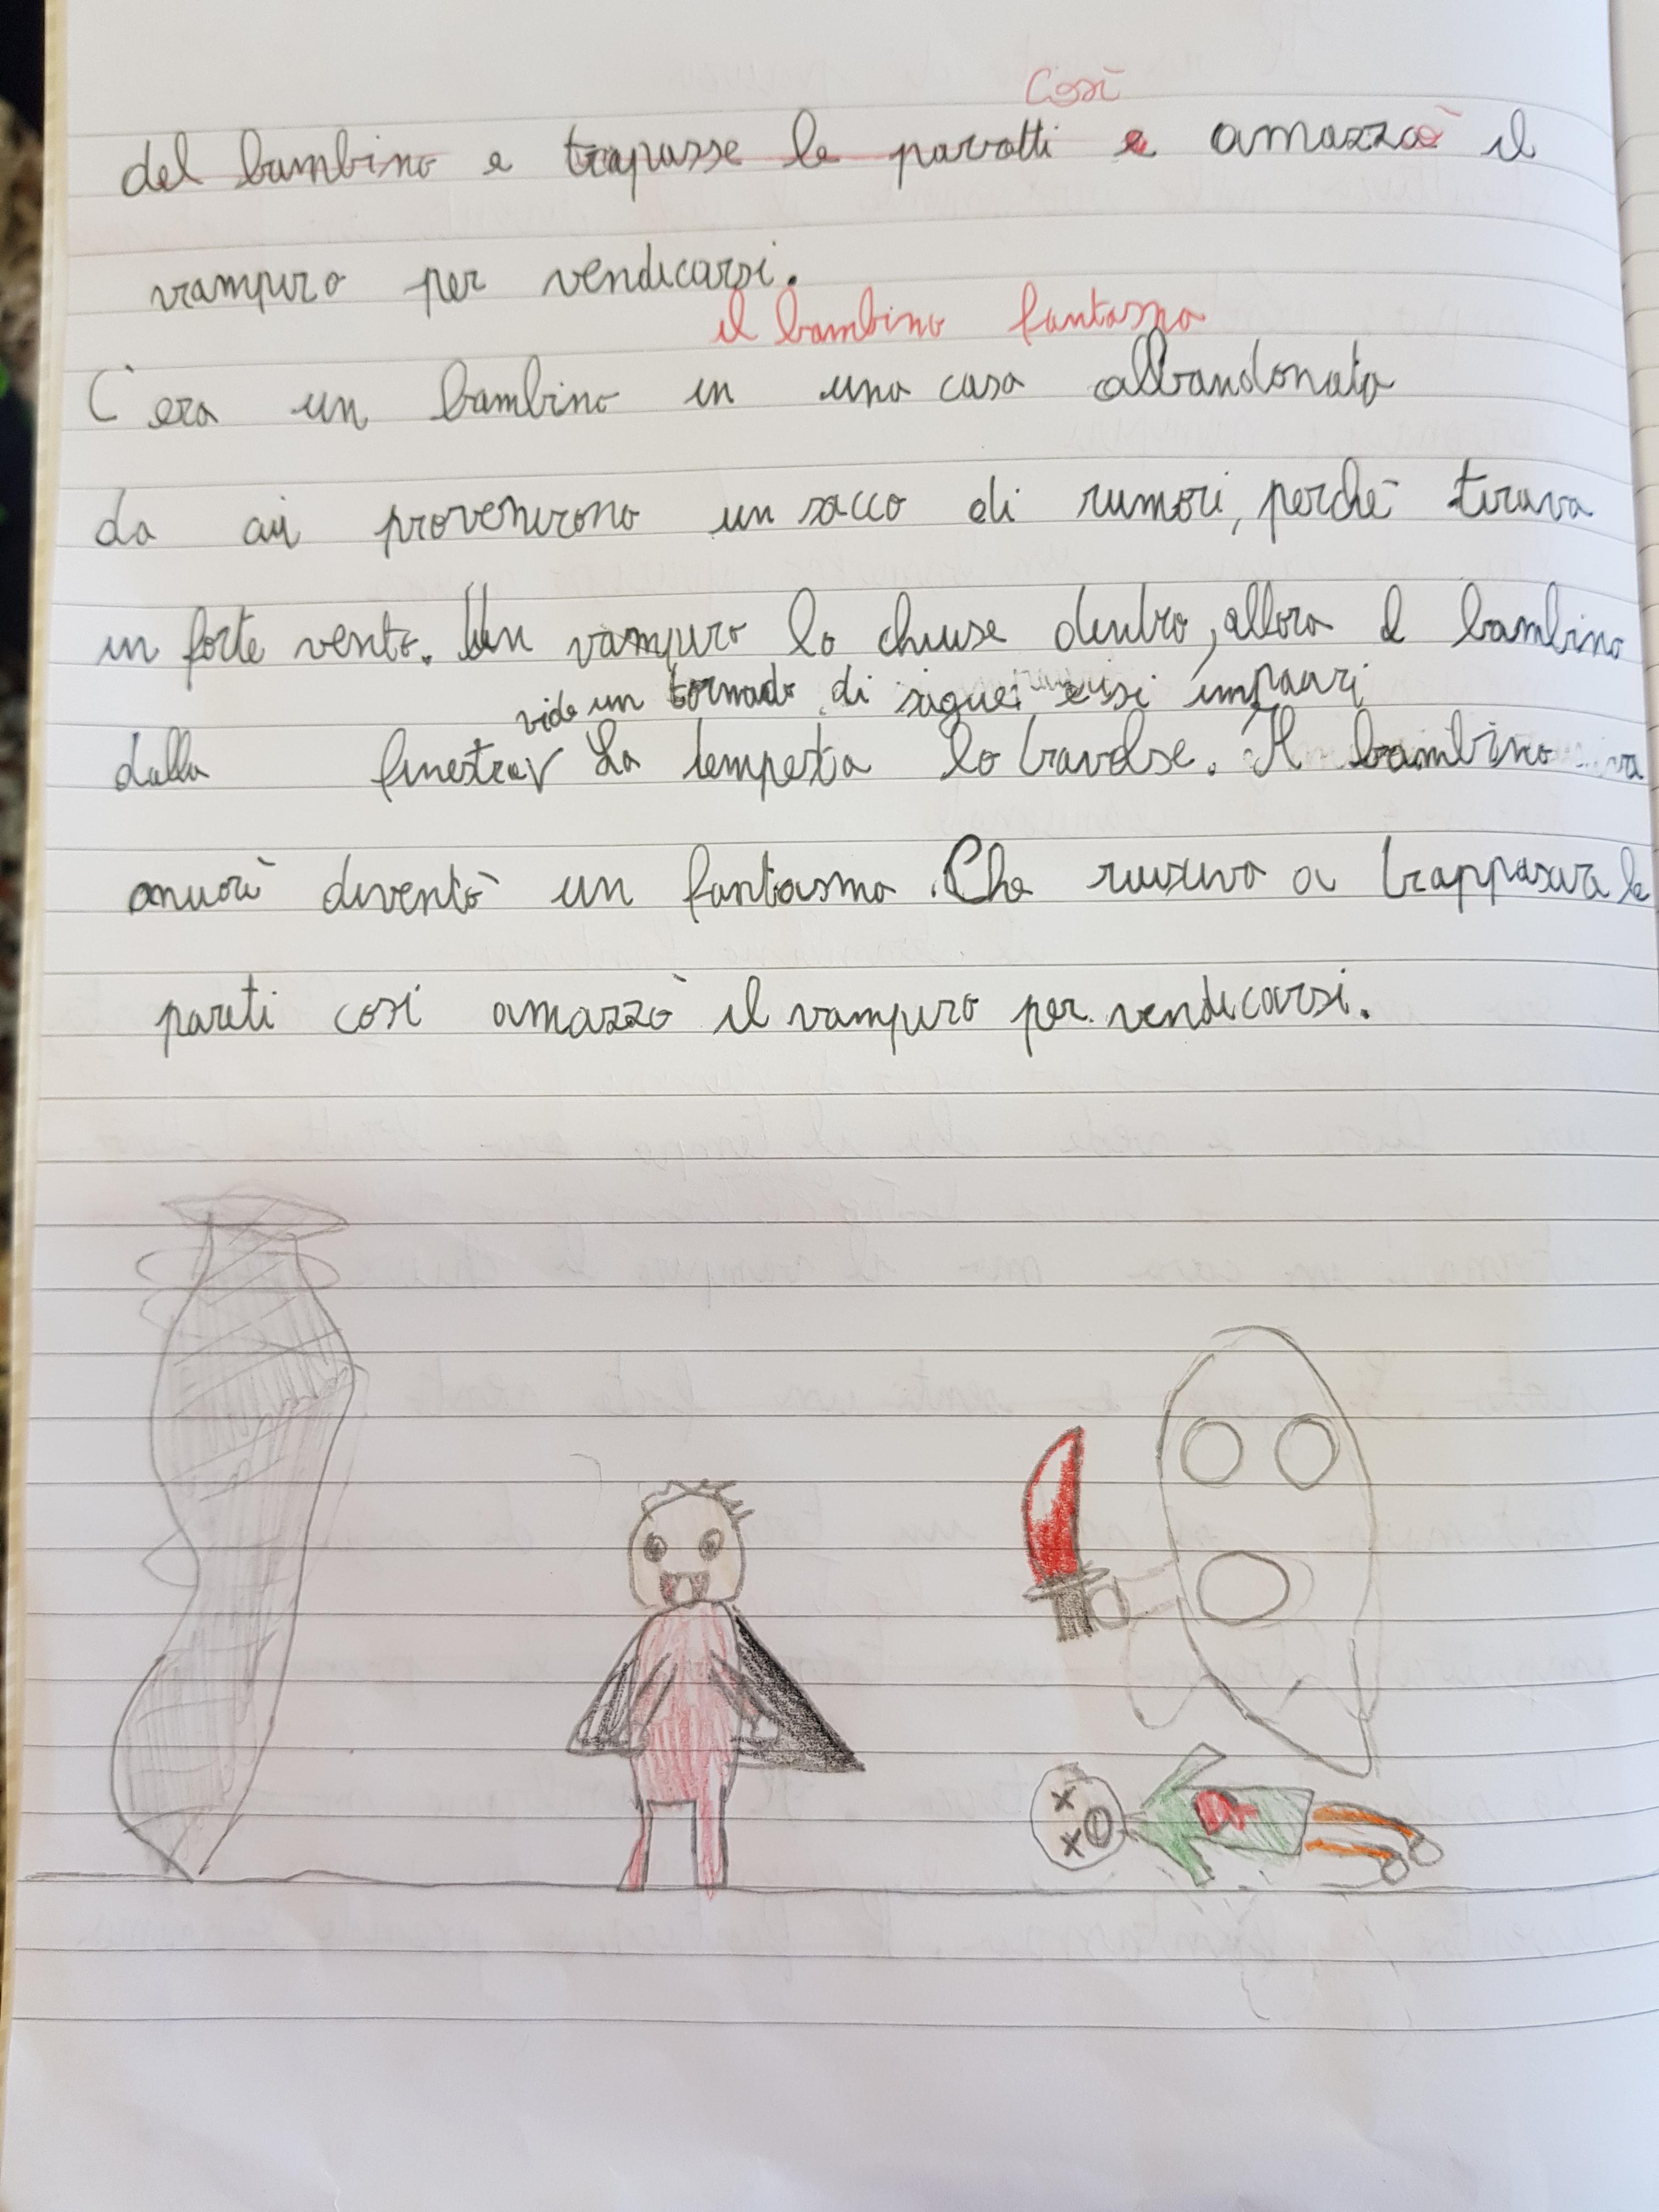 Così
del bambino e trapasse le paratti e amazzò il
vampiro per vendicarsi.
il bambino fantasma
C'era un bambino in una casa abbandonata
da cui provenirono un sacco di rumori, perché tirava
un forte vento. Un vampiro lo chiuse dentro, allora il bambino
vide un tornado di sigue e si impaurì
dalla finestra V La tempesta lo travolse. Il bambino
muorì diventò un fantasma. Che riusciva a trappasare le
pareti così amazzò il vampiro per vendicarsi.